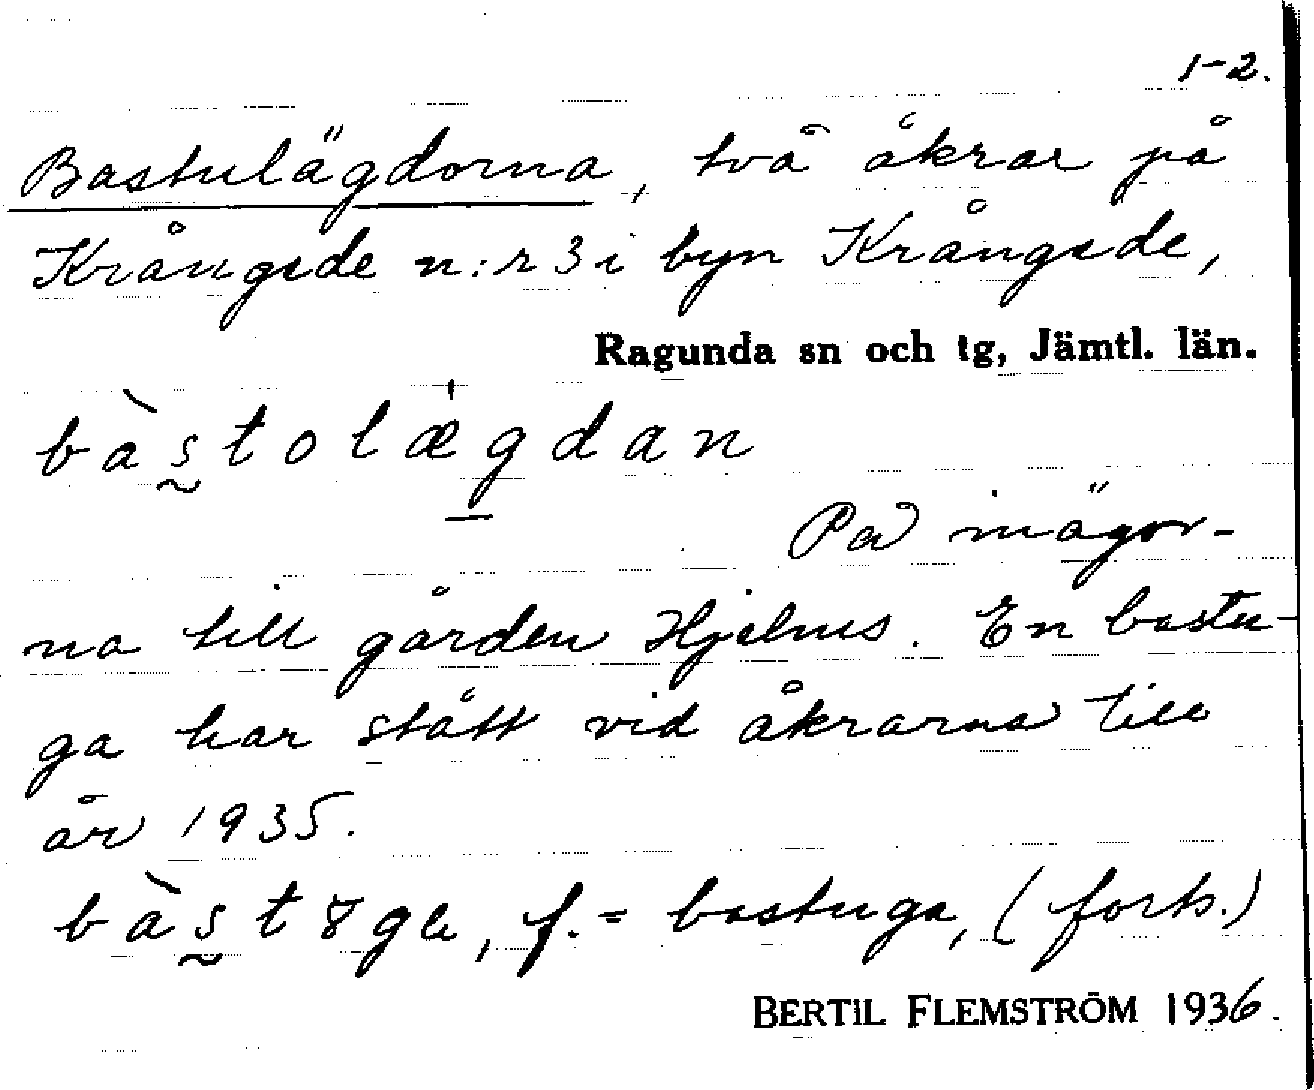 1-2.
Bastulägdorna, två åkrar på
Krångede n:r 3 i byn Krångede,
Ragunda sn och tg, Jämtl. län.
bàstolægdan
På inägor-
na till gården Hjelms. En bastu-
ga har stått vid åkrarna till
år 1935.
f. = bastuga, (forts.)
BERTIL FLEMSTRÖM 1936.